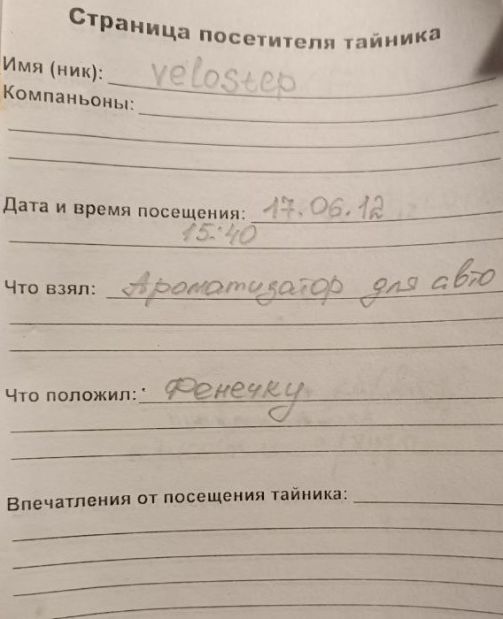 Страница посетителя тайника
Имя (ник): velostep
Компаньоны:
Дата и время посещения: 17.06.12
15:40
Что взял: Ароматизатор для авто
Что положил: Фенечку
Впечатления от посещения тайника: